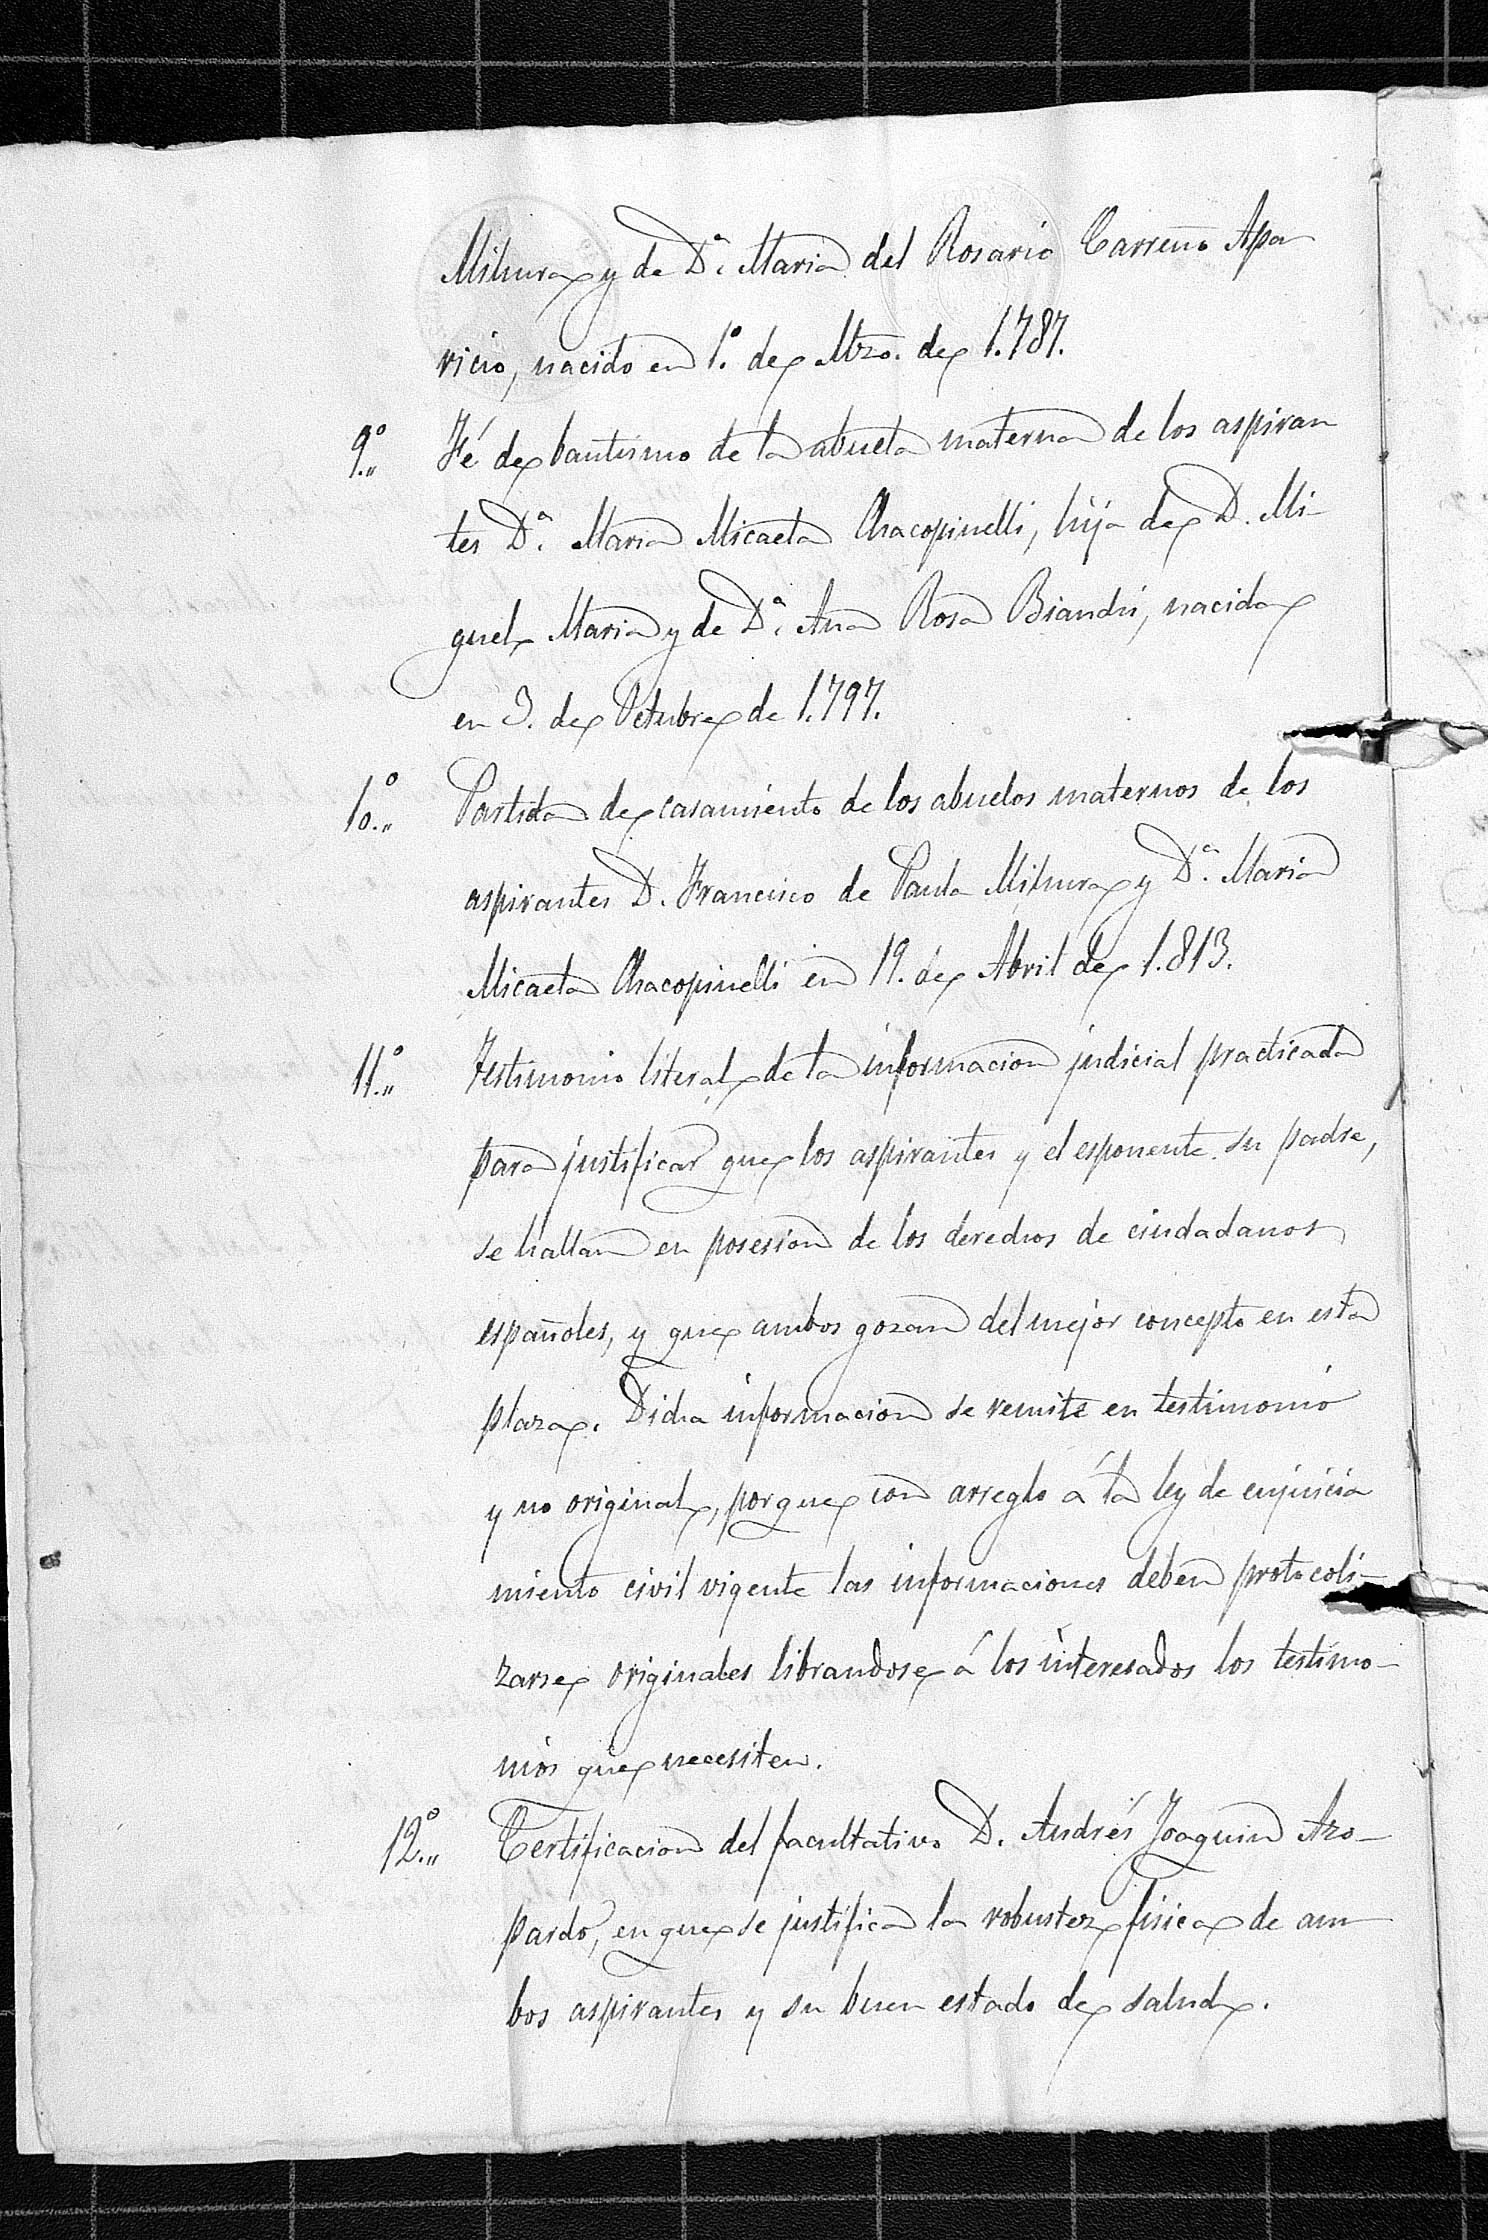 Mihura y de D.ª Maria del Rosario Carreño Apa
ricio, nacido en 1.º de Mzo. de 1.787.
9.º Fé de bautismo de la abuela materna de los aspiran
tes D.ª Maria Micaela Chacopinelli, hija de D. Mi-
guel Maria y de D.ª Ana Rosa Biandri, nacida
en 3. de Octubre de 1.797.
10.º Partida de casamiento de los abuelos maternos de los
aspirantes D. Francisco de Paula Mihura y D.ª Maria
Micaela Chacopinelli en 19. de Abril de 1.813.
11.º Testimonio literal de la informacion judicial practicada
para justificar que los aspirantes y el esponente su padre,
se hallan en posesion de los derechos de ciudadanos
españoles, y que ambos gozan del mejor concepto en esta
plaza. Dicha informacion se remite en testimonio
y no original, porque con arreglo á la ley de enjuicia
miento civil vigente las informaciones deben protocoli-
zarse originales librandose á los interesados los testimo-
nios que necesiten.
12.º Certificacion del facultativo D. Andrés Joaquin Azo-
pardo, en que se justifica la robustez fisica de am-
bos aspirantes y su buen estado de salud.